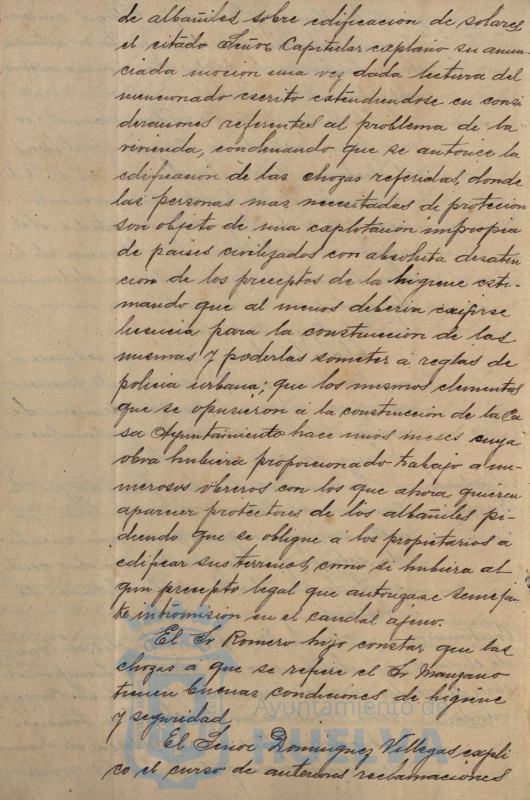 de albañiles sobre edificacion de solares,
el citado Señor Capitular explano su anun-
ciada mocion una vez dada lectura del
mencionado escrito estendiendose en consi
deraciones referentes al problema de la
vivienda, condenando que se autorice la
edificacion de las chozas referidas, donde
las personas mas necesitadas de proteccion
son objeto de una explotacion impropia
de paises civilizados con absoluta desaten-
cion de los preceptos de la higiene esti-
mando que al menos deberia exijirse
licencia para la construccion de las
mismas y poderlas someter á reglas de
policia urbana; que los mismos elementos
que se opusieron á la construccion de la Ca
sa Ayuntamiento hace unos meses cuya
obra hubiera proporcionado trabajo a nu-
merosos obreros son los que ahora quieren
aparecer protectores de los albañiles pi-
diendo que se obligue á los propietarios á
edificar sus terrenos, como si hubiera al
gun precepto legal que autorizase semejan-
te intromision en el caudal ajeno.
El Sr Romero hizo constar que las
chozas a que se refiere el Sr Manzano
tienen buenas condiciones de higiene
y seguridad.
El Señor Dominguez Villegas expli
co el curso de anteriores reclamaciones
Ayuntamiento de
HUELVA